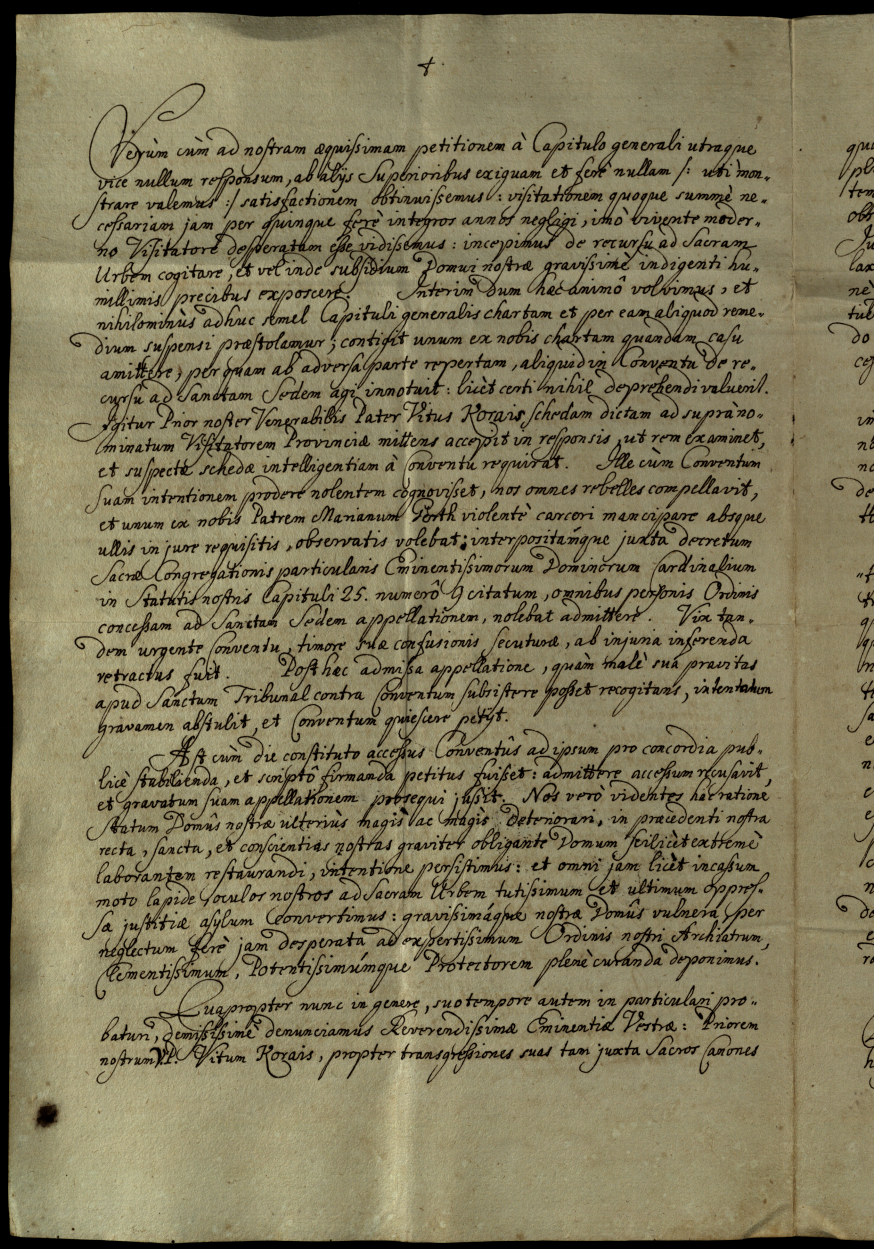 †
Verùm cùm ad nostram æquissimam petitionem à Capitulo generali utraque
vice nullum responsum, ab alijs Superioribus exiguam et ferè nullam /: uti mon-
strare valemus :/ satisfactionem obtinuissemus : visitationem quoque summè ne-
cessariam jam per quinque ferè integros annos negligi, imò vivente moder-
no Visitatore desperatam esse vidissemus : incepimus de recursu ad Sacram
Urbem cogitare, et vel inde subsidium Domui nostræ gravissimè indigenti hu-
millimis precibus exposcere. Interim Dum hæc animô volvimus, et
nihilominùs adhuc semel Capituli generalis chartam et per eam aliquod reme-
dium suspensi præstolamur ; contigit unum ex nobis chartam quandam casu
amittere, per quam ab adversa parte repertam, aliquid in Conventu de re-
cursu ad Sanctam Sedem agi innotuit : licèt certi nihil deprehendi valuerit.
Igitur Prior noster Venerabilis Pater Vitus Korais schedam dictam ad supràno-
minatum Visitatorem Provinciæ mittens accepit in responsis, ut rem examinet,
et suspectæ schedæ intelligentiam à Conventu requirat. Ille cùm Conventum
suam intentionem prodere nolentem cognovisset, nos omnes rebelles compellavit,
et unum ex nobis Patrem Marianum Perth violentè carceri mancipare absque
ullis in jure requisitis, observatis volebat: interpositámque juxta decretum
Sacræ Congregationis particularis Eminentissimorum Dominorum Cardinalium
in Statutis nostris Capituli 25. numerô 9 citatum, omnibus personis Ordinis
concessam ad Sanctam Sedem appellationem, nolebat admittere. Vix tan-
dem urgente Conventu, timore suæ confusionis secuturæ, ab injuria inferenda
retractus fuit. Post hæc admissa appellatione, quam malè sua pravitas
apud Sanctum Tribunal contra Conventum subsistere posset recogitans, intentatum
gravamen abstulit, et Conventum quiescere petijt.
Ast cùm die constituto accessus Conventûs ad ipsum pro concordia pub-
licè stabilienda, et scriptô firmanda petitus fuisset : admittere accessum recusavit,
et gravatum suam appellationem prosequi jussit. Nos verò videntes hac ratione
Statum Domûs nostræ ulteriùs magis ac magis deteriorari, in præcedenti nostra
recta, sancta, et conscientias nostras graviter obligante Domum scilicèt extremè
laborantem restaurandi, intentione persistimus : et omni jam licèt incassum
moto lapide oculos nostros ad Sacram Urbem tutissimum et ultimum oppres-
sæ justitiæ asylum convertimus : gravissimáque nostræ Domûs vulnera per
neglectum ferè jam desperata ad expertissimum Ordinis nostri Archiatrum,
Clementissimum, Potentissimúmque Protectorem plenè curanda deponimus.
Quapropter nunc in genere, suo tempore autem in particulari pro-
baturi, demississimè denunciamus Reverendissimæ Eminentiæ Vestræ : Priorem
nostrum V.P. Vitum Korais, propter transgressiones suas tam juxta Sacros Canones